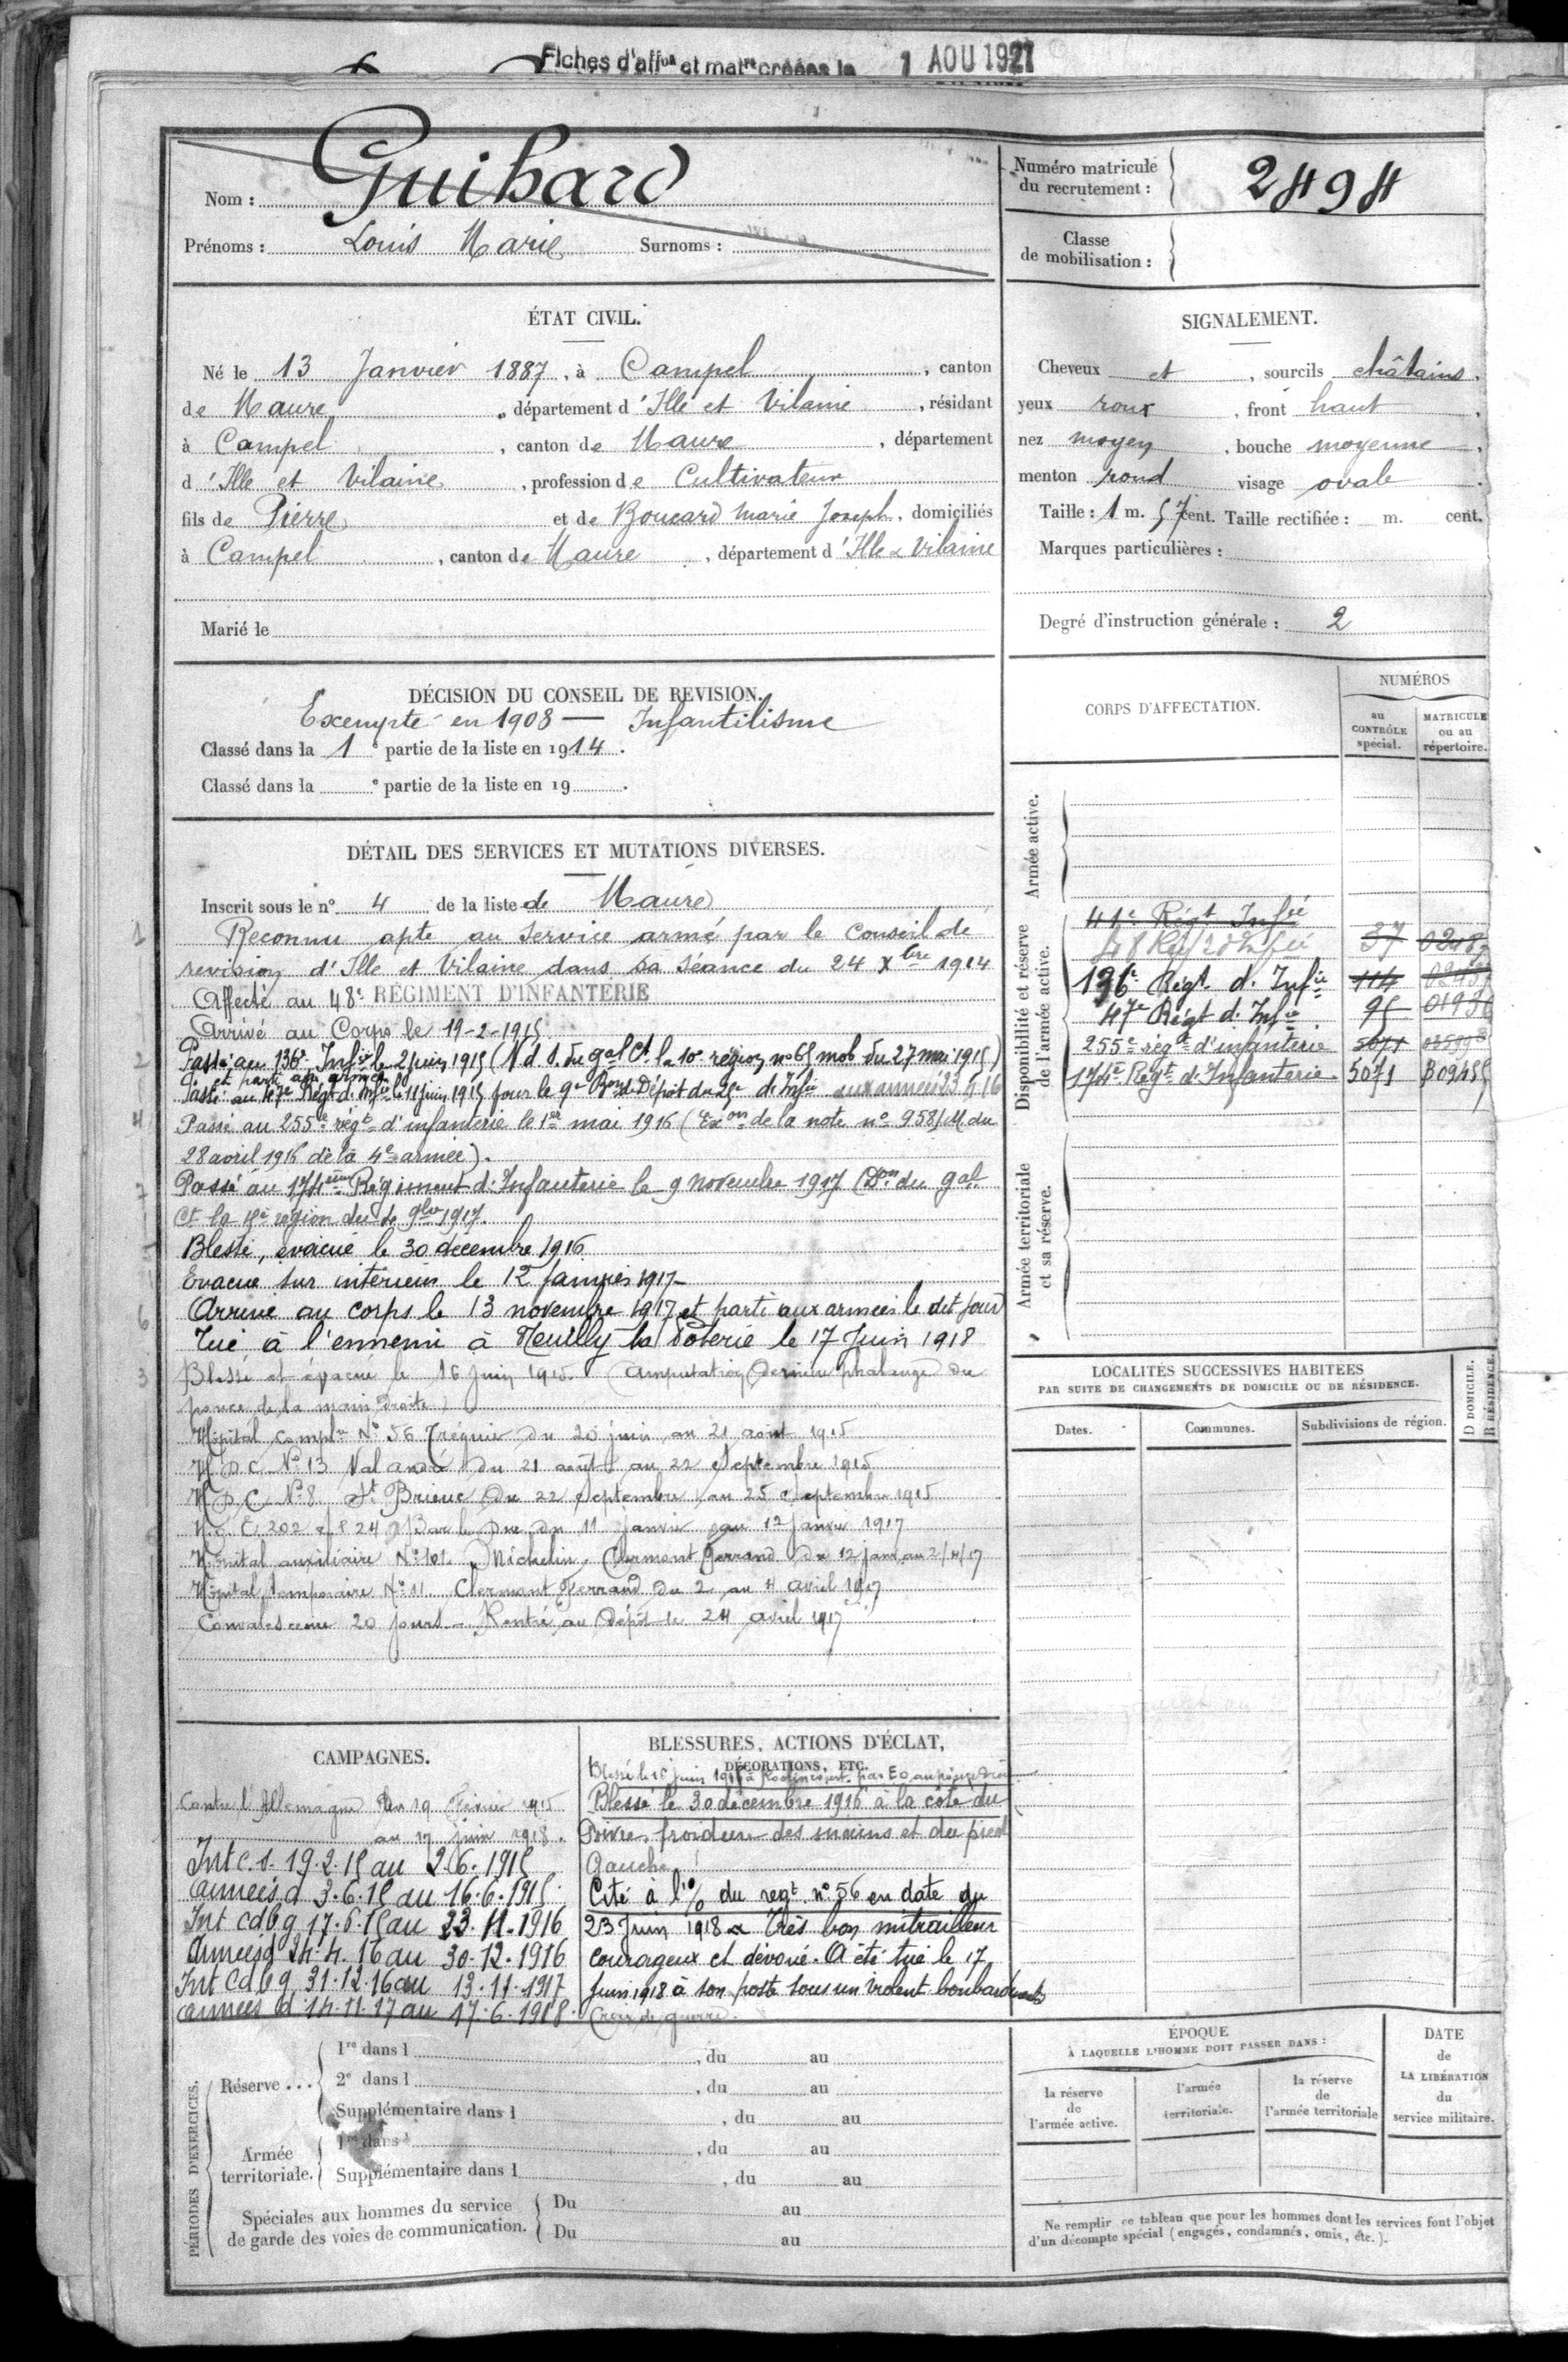 Fiches d'aff^on et mat^re créées le 1 AOU 1921
Nom : Guihard
Prénoms : Louis Marie Surnoms :
Numéro matricule du recrutement : 2494
Classe de mobilisation :
ÉTAT CIVIL.
Né le 13 Janvier 1887, à Campel, canton
de Maure, département d'Ille et Vilaine, résidant
à Campel, canton de Maure, département
d'Ille et Vilaine, profession de Cultivateur
fils de Pierre et de Boucard Marie Joseph, domiciliés
à Campel, canton de Maure, département d'Ille & Vilaine
Marié le
SIGNALEMENT.
Cheveux et, sourcils châtains,
yeux roux, front haut,
nez moyen, bouche moyenne,
menton rond visage ovale.
Taille : 1 m. 57 cent. Taille rectifiée : m. cent.
Marques particulières :
Degré d'instruction générale : 2
DÉCISION DU CONSEIL DE REVISION.
Exempté en 1908 — Infantilisme
Classé dans la 1e partie de la liste en 1914.
Classé dans la e partie de la liste en 19 .
DÉTAIL DES SERVICES ET MUTATIONS DIVERSES.
Inscrit sous le n° 4 de la liste de Maure
1 Reconnu apte au service armé par le Conseil de
revision d'Ille et Vilaine dans sa séance du 24 Xbre 1914
Affecté au 48e RÉGIMENT D'INFANTERIE
Arrivé au Corps le 19-2-1915
2 Passé au 136e Infie le 2 juin 1915 (N. d. S. du gal Ct la 10e région n° 65 mob du 27 mai 1915)
et parti aux armées
Passé au 47e Regt d'Infie le 11 juin 1915 pour le 9e Bon Dépôt du 25e d'Infie aux armées 23.4.16
4 Passé au 255e régt d'infanterie le 1er mai 1916 (Exon de la note n° 958/M du
28 avril 1916 de la 4e armée).
7 Passé au 174ème Régiment d'Infanterie le 9 novembre 1917 (Don du gal
Ct la région du 9bre 1917.
Blessé, évacué le 30 décembre 1916
Evacué sur intérieur le 12 janvier 1917
6 Arrivé au corps le 13 novembre 1917 et parti aux armées le dit jour
Tué à l'ennemi à Neuilly la Poterie le 17 Juin 1918
3 Blessé et évacué le 16 juin 1915. (Amputation dernière phalange du
pouce de la main droite)
Hôpital complre N° 56 Tréguier du 20 juin au 21 aout 1915
H D C N° 13 Val andré du 21 août au 22 Septembre 1915
H D C N° 8 St Brieuc du 22 Septembre au 25 Septembre 1915
H.o.E. 202 et 24 Bar le Duc du 11 janvier au 12 janvier 1917
Hôpital auxiliaire N° 101 Michelin Clermont Ferrand du 12 janv au 2/4/17
Hôpital temporaire N° 11 Clermont Ferrand du 2 au 4 avril 1917
Convalescence 20 jours - Rentré au dépôt le 24 avril 1917
CORPS D'AFFECTATION.
NUMÉROS
au CONTRÔLE spécial.
MATRICULE ou au répertoire.
Armée active.
Disponibilité et réserve de l'armée active.
41e Régt Infie
48 Régt d'Infie 37
136e Régt d'Infie 114
47e Régt d'Infie 95
255e régt d'infanterie
174e Régt d'Infanterie 5071
Armée territoriale et sa réserve.
LOCALITÉS SUCCESSIVES HABITÉES
PAR SUITE DE CHANGEMENTS DE DOMICILE OU DE RÉSIDENCE.
Dates. Communes. Subdivisions de région. D DOMICILE. R RÉSIDENCE.
CAMPAGNES.
Contre l'Allemagne du 19 Février 1915
au 17 juin 1918.
Int c.s. 19.2.15 au 2.6.1915
armées d 3.6.15 au 16.6.1915
Int cdbg 17.6.15 au 23.4.1916
Armées d 24.4.16 au 30.12.1916
Int cdbg 31.12.16 au 13.11.1917
armées d 14.11.17 au 17.6.1918.
BLESSURES, ACTIONS D'ÉCLAT, DÉCORATIONS, ETC.
Blessé le 16 juin 1915 à Roclincourt par EO au pouce droit
Blessé le 30 décembre 1916 à la côte du
Poivre, froidure des mains et du pied
Gauche
Cité à l'o/o du regt n° 56 en date du
23 Juin 1918 « Très bon mitrailleur
courageux et dévoué. A été tué le 17
Juin 1918 à son poste sous un violent bombardement
Croix de guerre.
PÉRIODES D'EXERCICES.
Réserve... 1re dans l , du au
2e dans l , du au
Supplémentaire dans l , du au
Armée territoriale. 1re dans l , du au
Supplémentaire dans l , du au
Spéciales aux hommes du service de garde des voies de communication. Du au
Du au
ÉPOQUE
À LAQUELLE L'HOMME DOIT PASSER DANS :
la réserve de l'armée active.
l'armée territoriale.
la réserve de l'armée territoriale
DATE de LA LIBÉRATION du service militaire.
Ne remplir ce tableau que pour les hommes dont les services font l'objet
d'un décompte spécial (engagés, condamnés, omis, etc.).